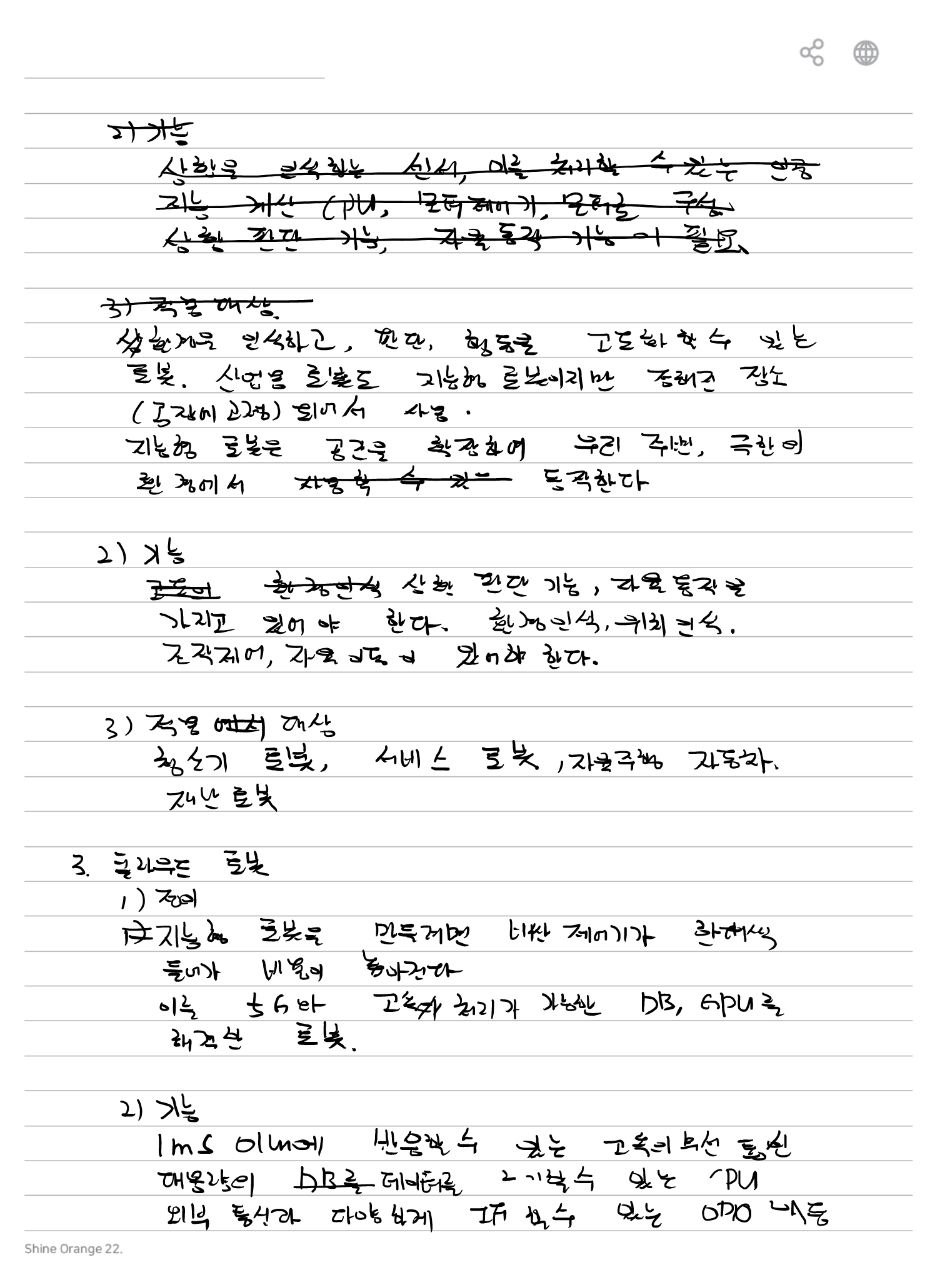 2) 기능
상황을 인식하는 센서, 이를 처리할 수 있는 인공
지능 계산 CPU, 모터제어기, 모터로 구성.
상황 판단 기능, 자율동작 기능이 필요.
3) 적용 대상.
인식하고, 판단, 행동을 고도화 할 수 있는
로봇. 산업용 로봇도 지능형 로봇이지만 정해진 장소
(공장에 고정) 되어서 사용.
지능형 로봇은 공간을 확장하여 우리 주변, 극한의
환경에서 사용할 수 있는 동작한다
2) 기능
환경인식 상황 판단 기능, 자율동작을
가지고 있어야 한다. 환경인식, 위치인식.
조작제어, 자율이동이 있어야 한다.
3) 적용 에서 대상
청소기 로봇, 서비스 로봇, 자율주행 자동차.
재난 로봇
3. 클라우드 로봇
1) 정의
지능형 로봇을 만들려면 비싼 제어기가 한대씩
들어가 비용이 높아진다
이를 5G와 고속 처리가 가능한 DB, GPU를
로봇.
2) 기능
1ms 이내에 반응할 수 있는 고속의 무선 통신
대용량의 DB를 데이터를 수 있는 CPU
외부 통신과 다양하게 I/F 할 수 있는
Shine Orange 22.